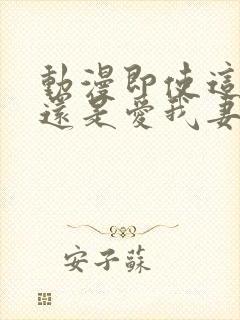 動漫即使這
還是愛我妻
安子蘇